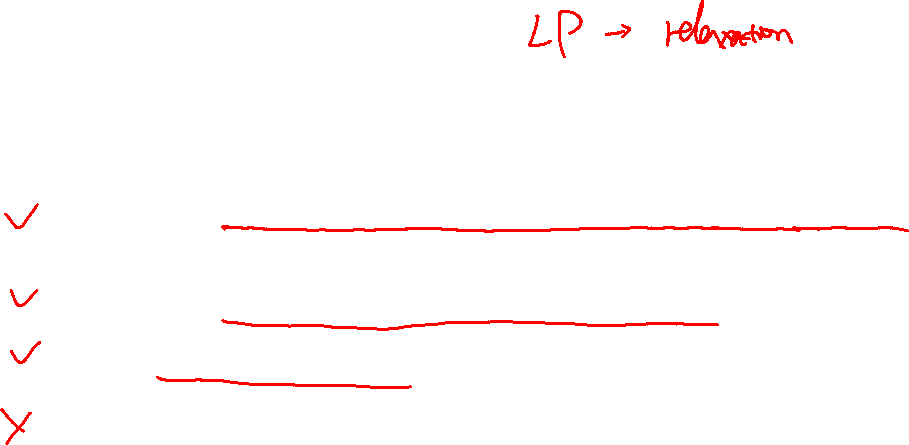 LP → relaxation
✓
✓
✓
X